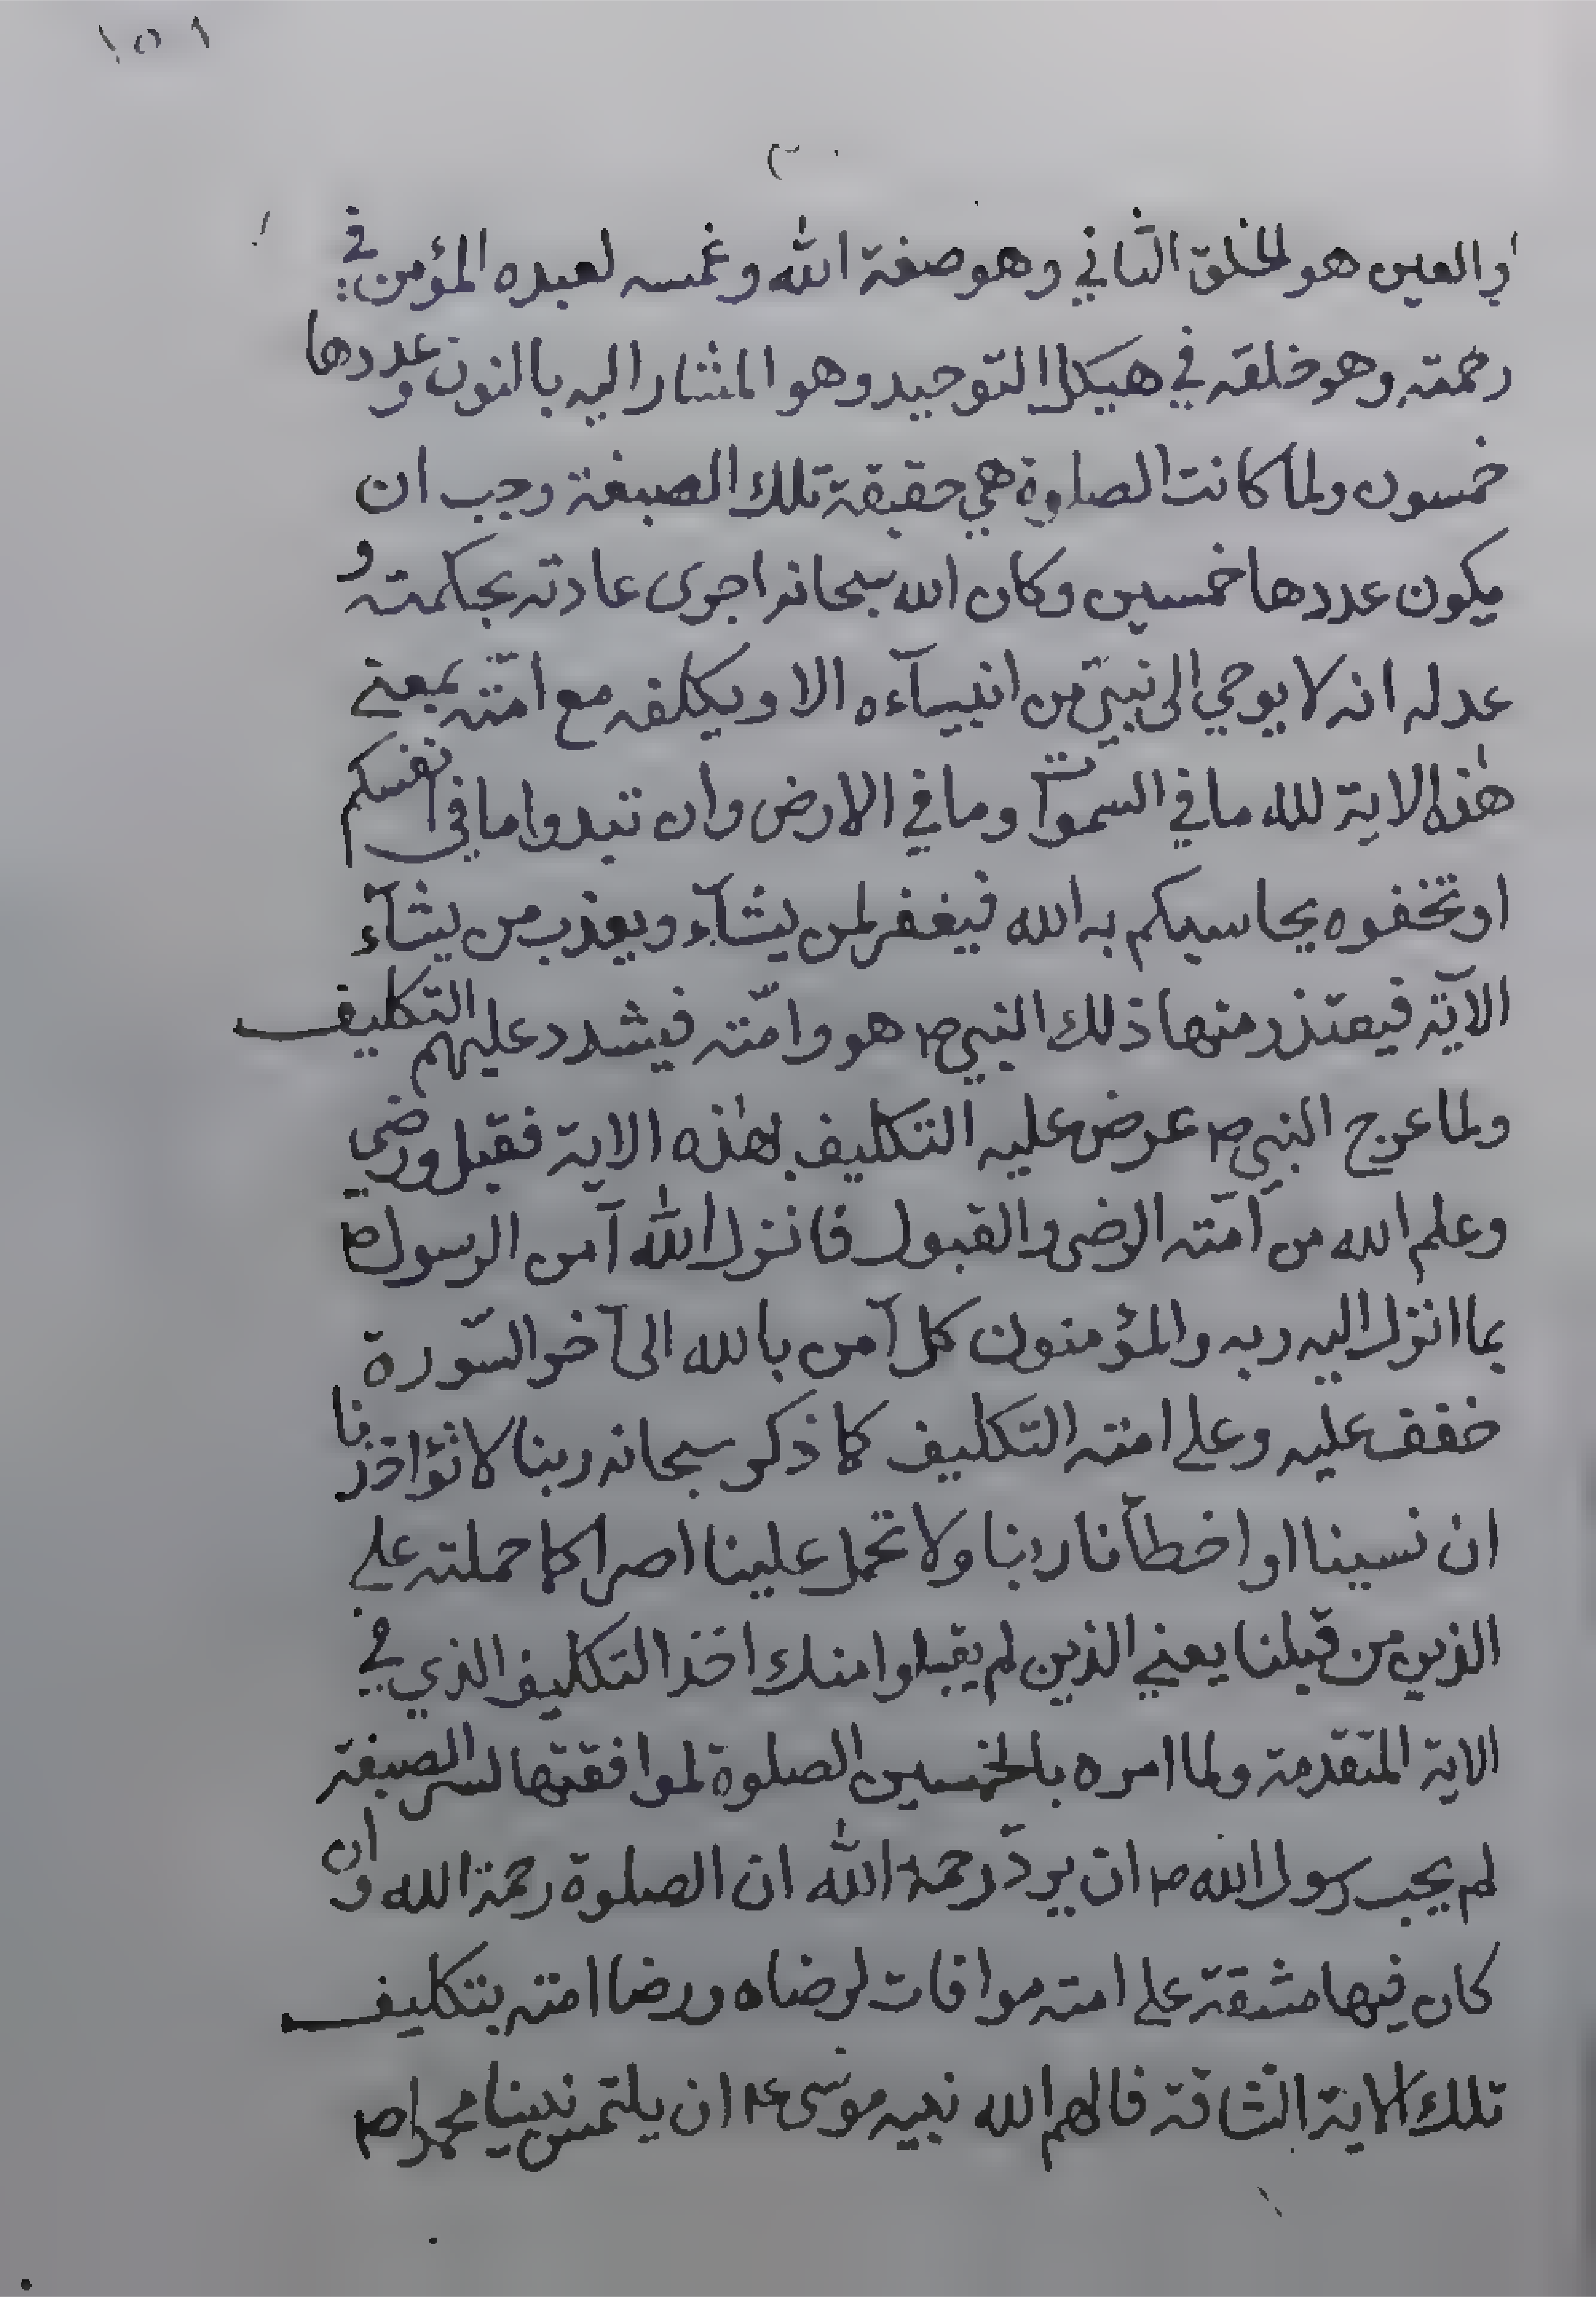 ١٥١
والعين هو الخلق الثاني وهو صفة الله وغمسه لعبده المؤمن في
رحمته وهو خلقه في هيكل التوحيد وهو المشار اليه بالنون وعددها
خمسون ولما كانت الصلوة هي حقيقة تلك الصبغة وجب ان
يكون عددها خمسين وكان الله سبحانه اجرى عادته بحكمته و
عدله انه لا يوحي الى نبيّ من انبيآءه الا ويكلفه مع امّته بمعنى
هٰذه الاية لله ما في السموآت وما في الارض وان تبدوا ما في انفسكم
او تخفوه يحاسبكم به الله فيغفر لمن يشآء ويعذب من يشآء
الآية فيعتذر منها ذلك النبي ص هو وامّته فيشدد عليهم التكليف
ولما عرج النبي ص عرض عليه التكليف بهٰذه الاية فقبل ورضي
وعلم الله من امّته الرضى والقبول فانزل الله آمن الرسول ص
بما انزل اليه ربه والمؤمنون كل آمن بالله الى آخر السّورة
خفف عليه وعلى امته التكليف كما ذكر سبحانه ربنا لا تؤاخذنا
ان نسينا او اخطأنا ربنا ولا تحمل علينا اصرا كما حملته على
الذين من قبلنا يعني الذين لم يقبلوا منك اخذ التكليف الذي في
الاية المتقدمة ولما امره بالخمسين الصلوة لموافقتها لسر الصبغة
لم يحب رسول الله ص ان يردّ رحمة الله ان الصلوة رحمة الله وان
كان فيها مشقة على امته موافات لرضاه ورضا امته بتكليف
تلك الاية الشاقة فالهم الله نبيه موسى ع ان يلتمس نبينا محمدا ص